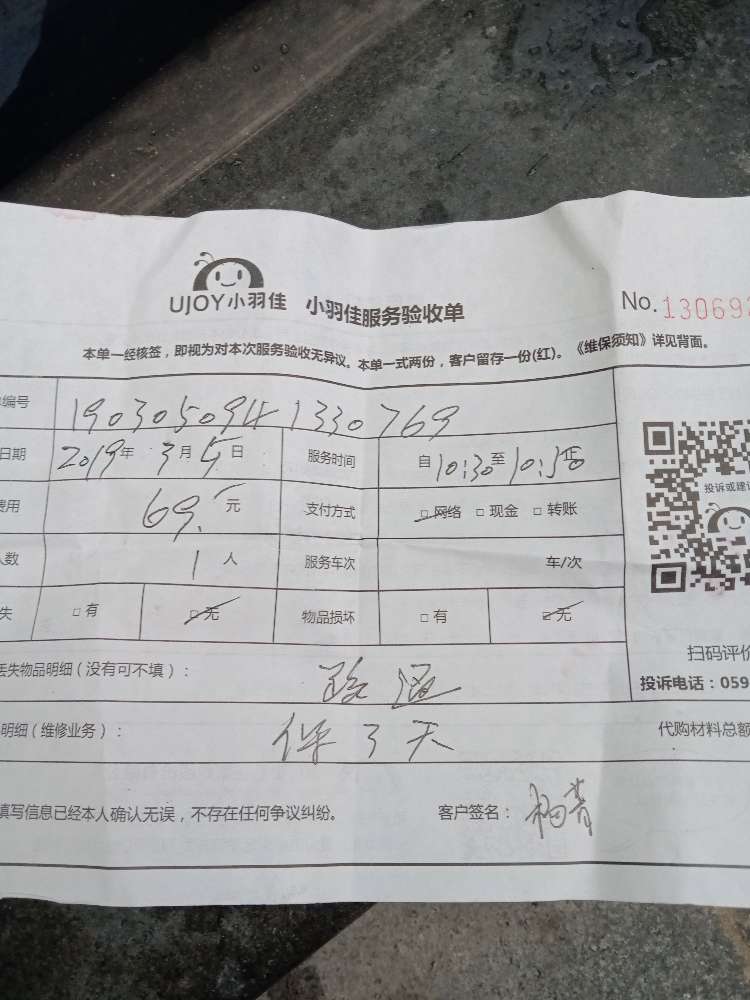 UJOY小羽佳 小羽佳服务验收单 No.13069
本单一经核签，即视为对本次服务验收无异议。本单一式两份，客户留存一份(红)。《维保须知》详见背面。
编号 1903050941330769
日期 2019年 3月5日 服务时间 自10:30至10:50
费用 69.元 支付方式 □网络 □现金 □转账
投诉或建议
人数 1人 服务车次 车/次
失 □有 □无 物品损坏 □有 □无
扫码评价
丢失物品明细（没有可不填）： 疏通
投诉电话：059
明细（维修业务）： 保3天
代购材料总额
填写信息已经本人确认无误，不存在任何争议纠纷。 客户签名：